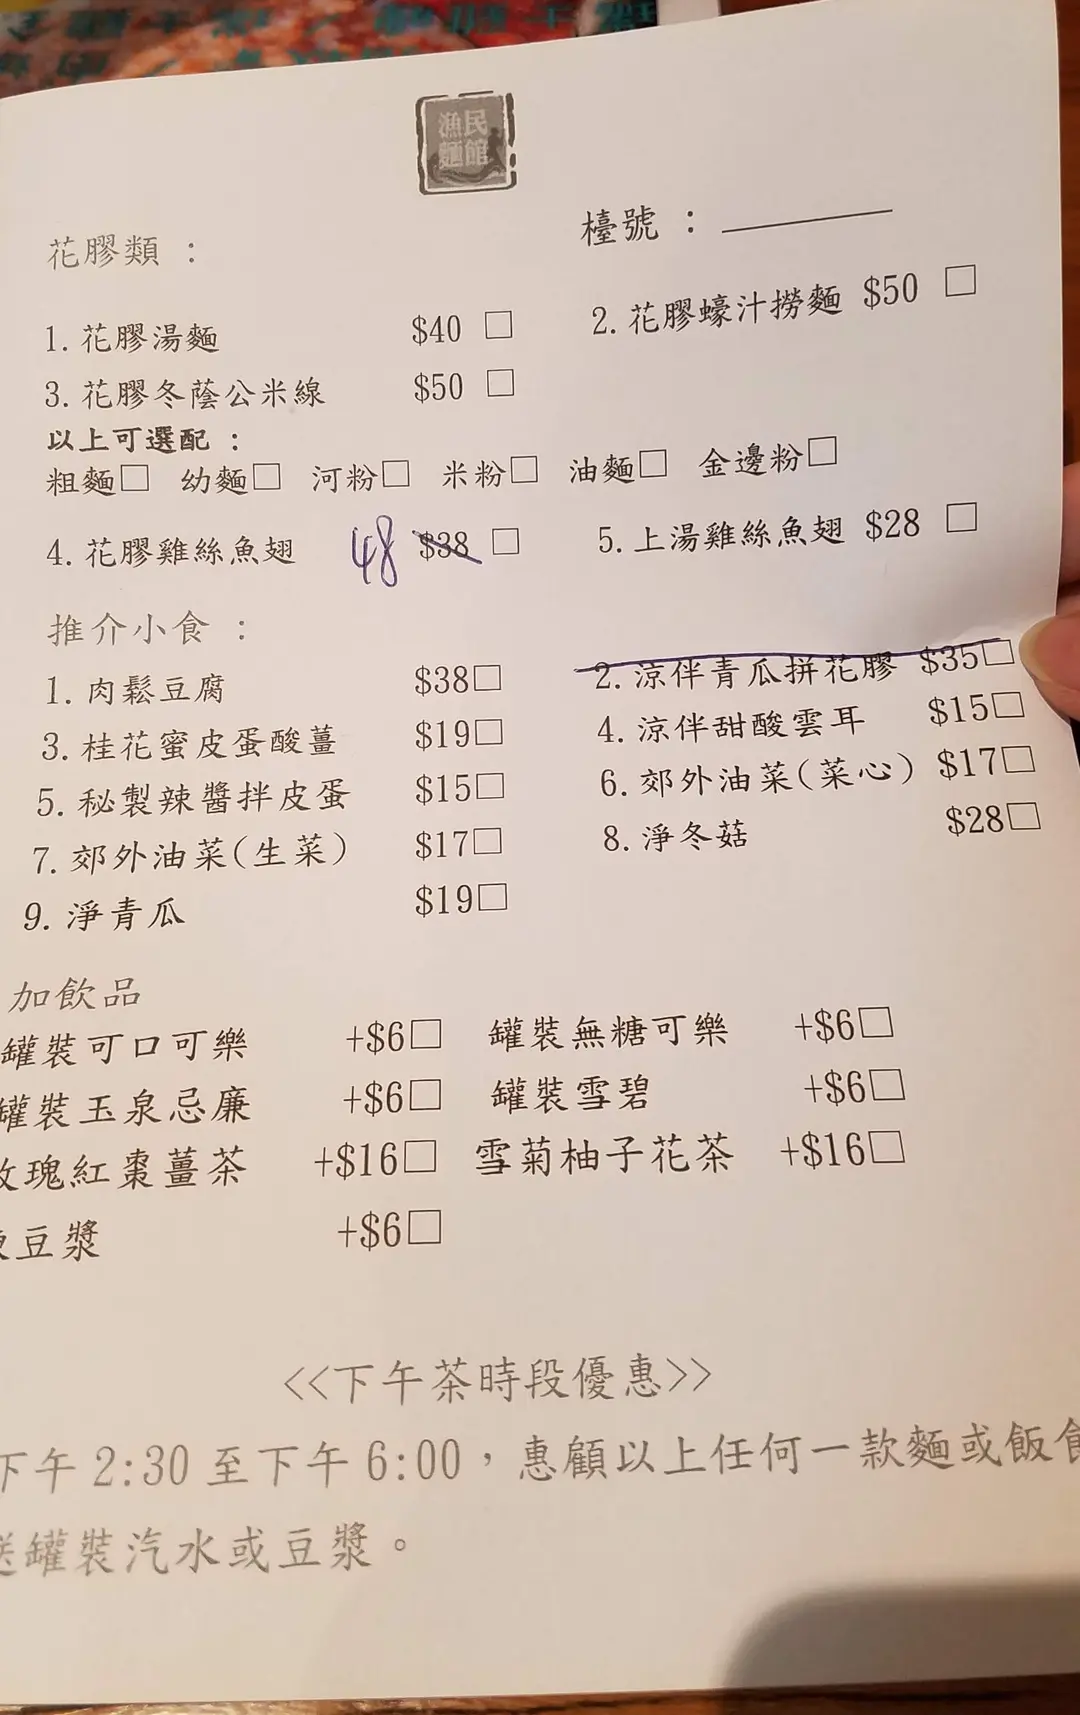 漁民
麵館
檯號 : ________
花膠類 :
1. 花膠湯麵 $40 □ 2. 花膠蠔汁撈麵 $50 □
3. 花膠冬蔭公米線 $50 □
以上可選配 :
粗麵□ 幼麵□ 河粉□ 米粉□ 油麵□ 金邊粉□
4. 花膠雞絲魚翅 48 $38 □ 5. 上湯雞絲魚翅 $28 □
推介小食 :
1. 肉鬆豆腐 $38□ 2. 涼伴青瓜拼花膠 $35□
3. 桂花蜜皮蛋酸薑 $19□ 4. 涼伴甜酸雲耳 $15□
5. 秘製辣醬拌皮蛋 $15□ 6. 郊外油菜(菜心) $17□
7. 郊外油菜(生菜) $17□ 8. 淨冬菇 $28□
9. 淨青瓜 $19□
加飲品
罐裝可口可樂 +$6□ 罐裝無糖可樂 +$6□
罐裝玉泉忌廉 +$6□ 罐裝雪碧 +$6□
玫瑰紅棗薑茶 +$16□ 雪菊柚子花茶 +$16□
豆漿 +$6□
<<下午茶時段優惠>>
下午 2:30 至下午 6:00，惠顧以上任何一款麵或飯食
送罐裝汽水或豆漿。